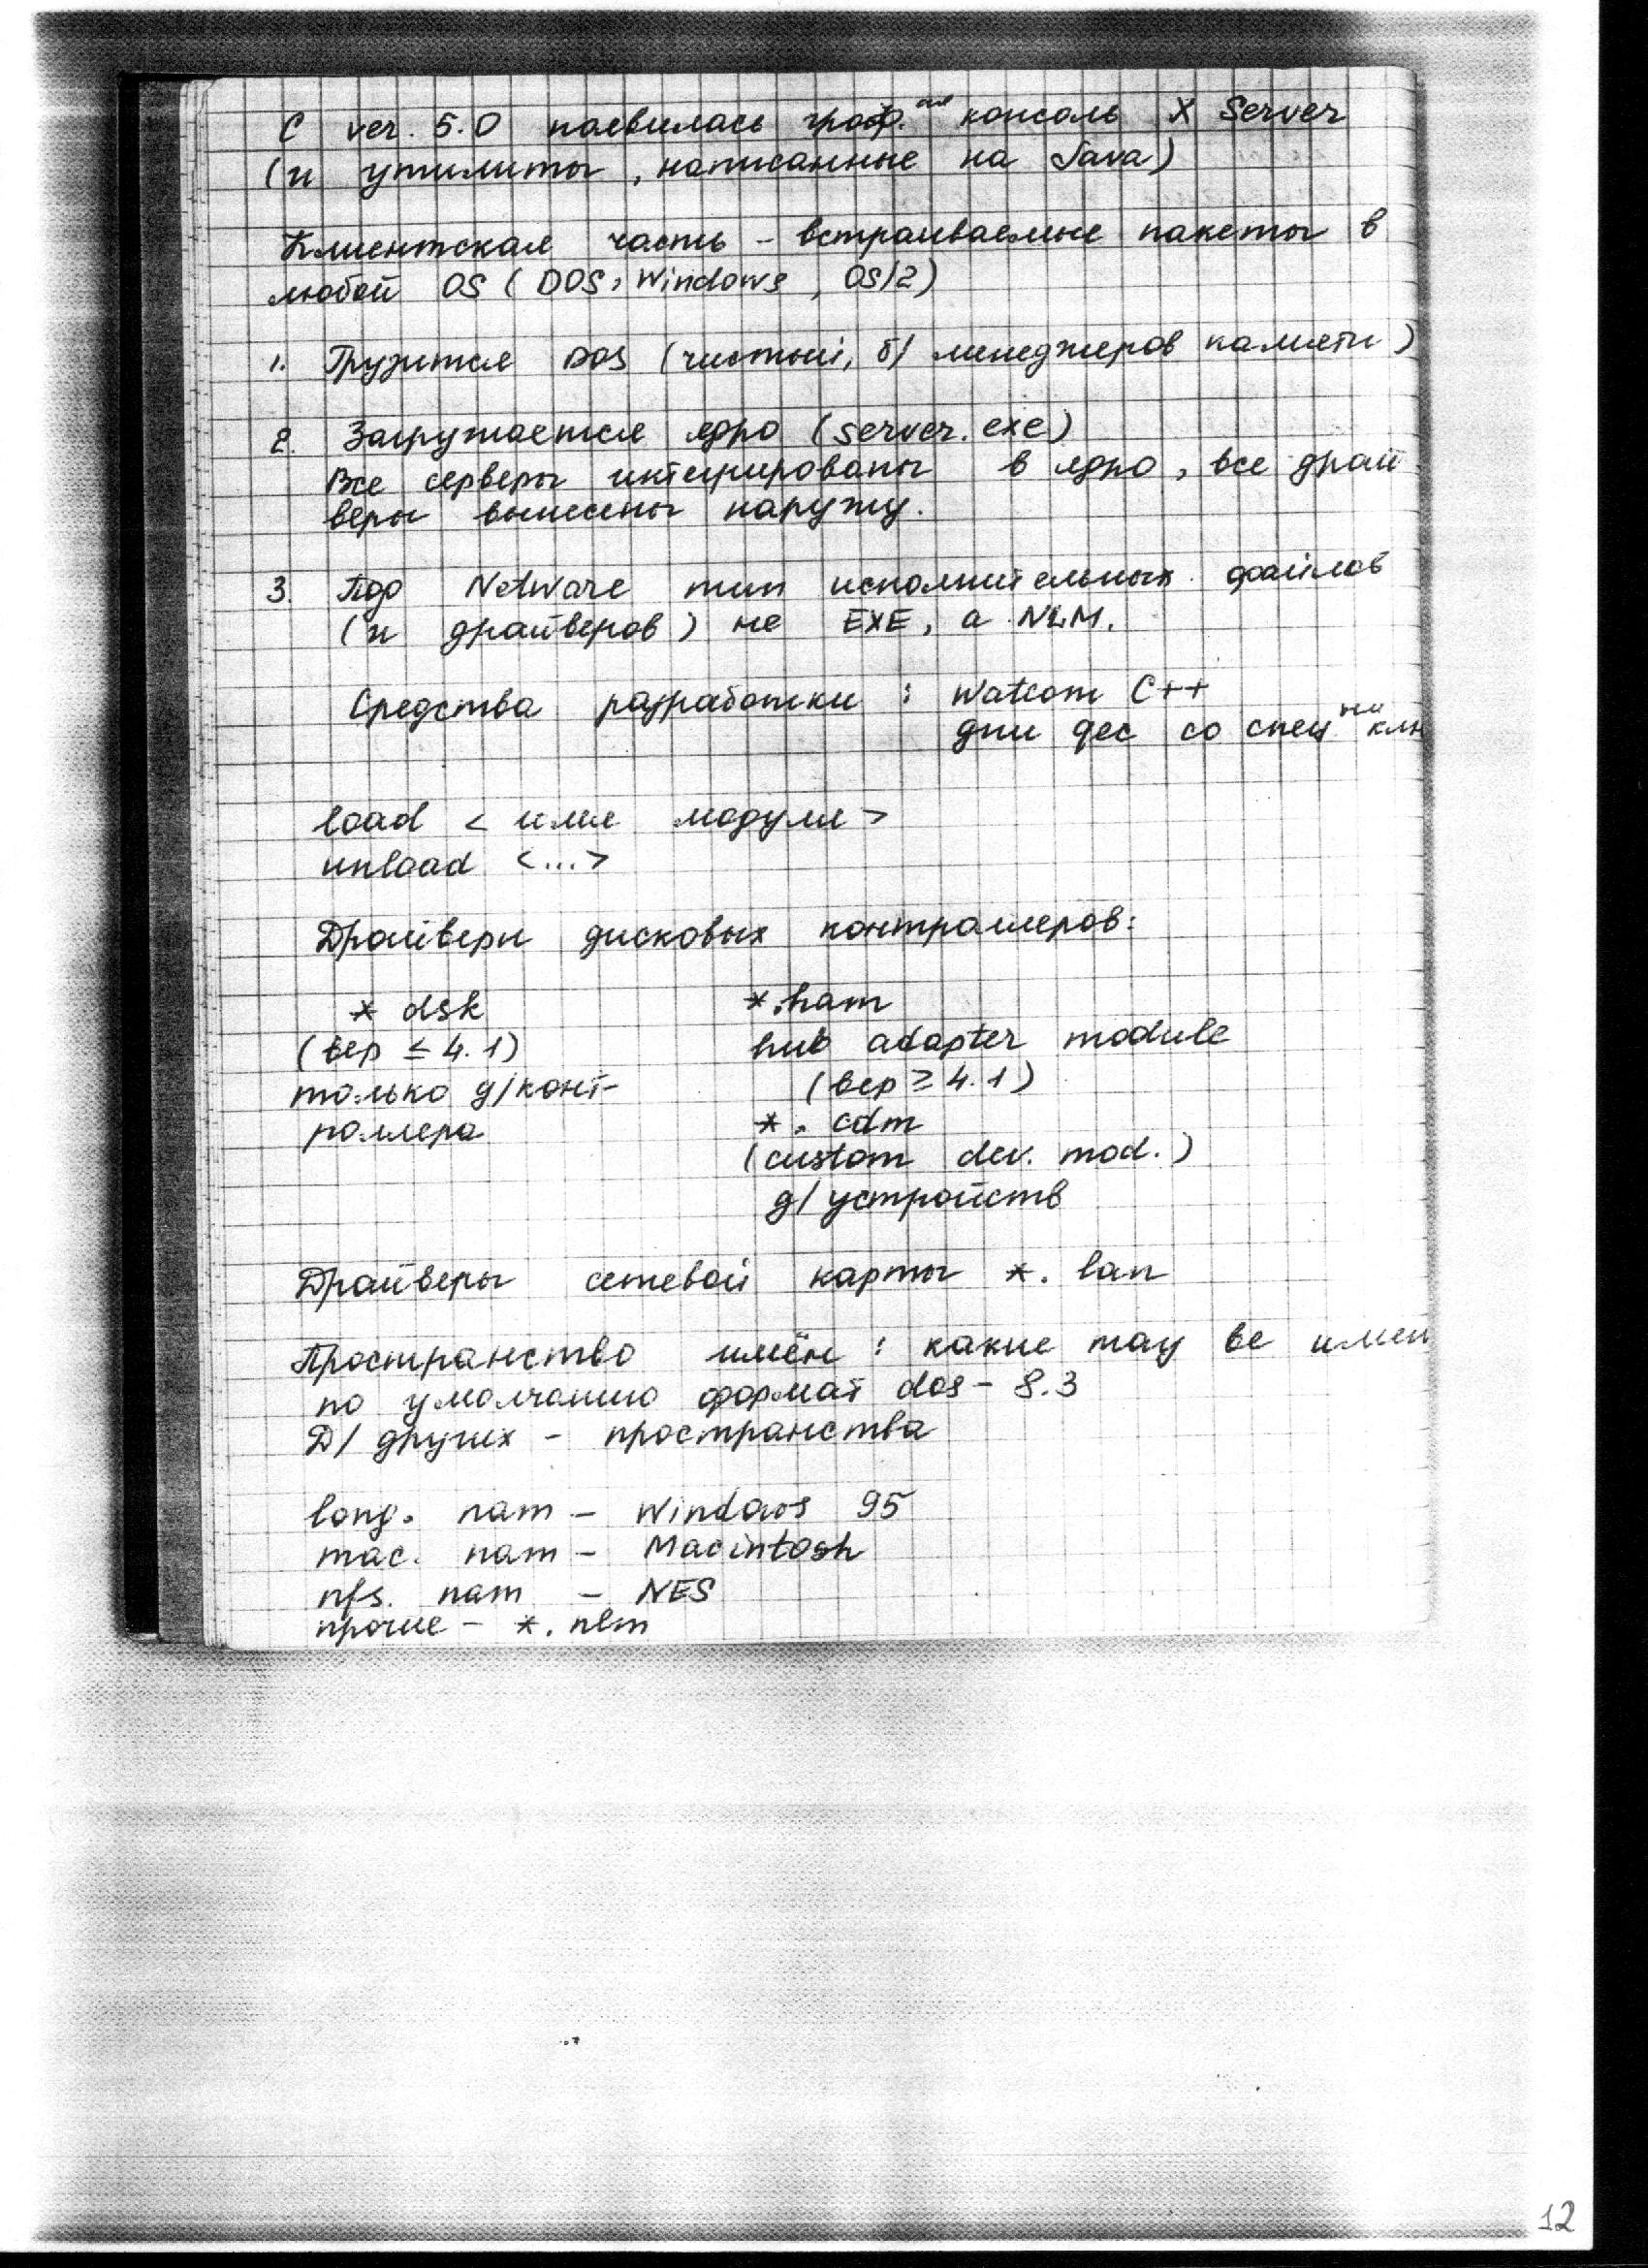 С ver. 5.0 появилась граф.ая консоль X Server
(и утилиты, написанные на Java)
Клиентская часть - встраиваемые пакеты в
любой OS (DOS, Windows, OS/2)
1. Грузится DOS (чистый, б/ менеджеров памяти)
2. Загружается ядро (server.exe)
Все серверы интегрированы в ядро, все драй
веры вынесены наружу.
3. Под NetWare тип исполнительных файлов
(и драйверов) не EXE, а NLM.
Средства разработки: Watcom C++
gnu gcc со спец ми клю
load <имя модуля>
unload <...>
Драйверы дисковых контроллеров:
* dsk *.ham
(вер ≤ 4.1) hub adapter module
только д/конт- (вер ≥ 4.1)
роллера *. cdm
(custom dev. mod.)
д/ устройств
Драйверы сетевой карты *. lan
Пространство имён: какие may be имен
по умолчанию формат dos - 8.3
Д/ других - пространства
long. nam - Windows 95
mac. nam - Macintosh
nfs. nam - NFS
прочие - *. nlm
12